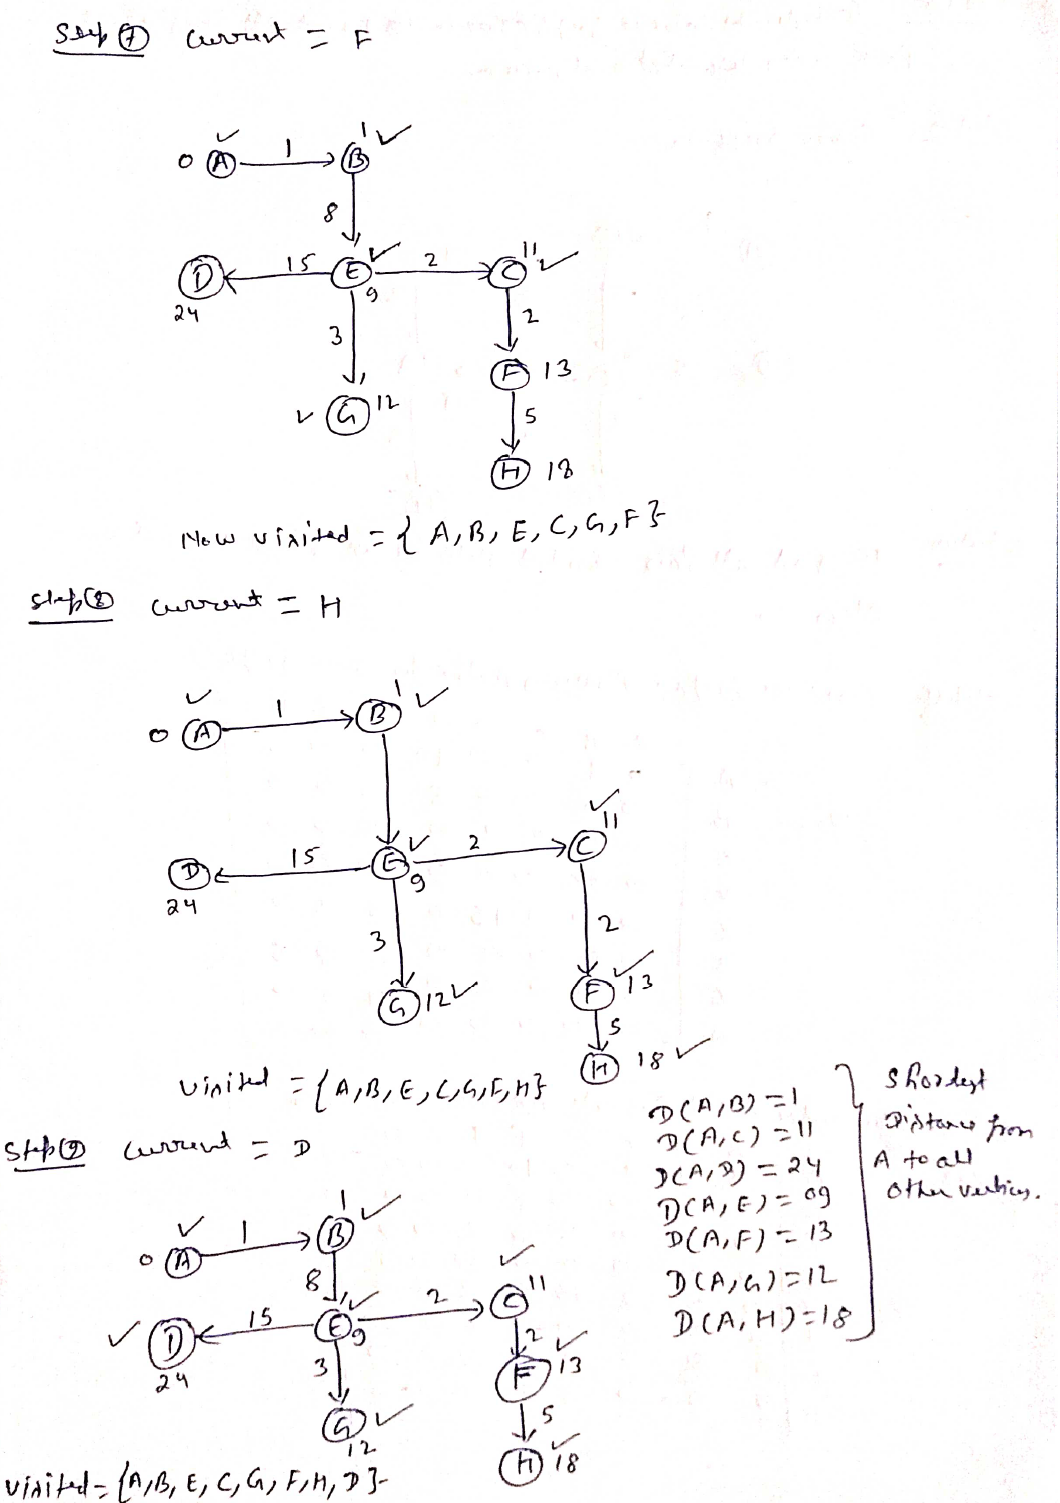 Step ⑦ current = F
0 A 1 B 1
8
D 15 E 2 C 11
24 9
3 2
F 13
G 12 5
H 18
Now visited = { A, B, E, C, G, F }
Step ⑧ current = H
0 A 1 B 1
D 15 E 2 C 11
24 9
3 2
G 12 F 13
5
H 18
visited = { A, B, E, C, G, F, H }
D(A, B) = 1
D(A, C) = 11
D(A, D) = 24
D(A, E) = 09
D(A, F) = 13
D(A, G) = 12
D(A, H) = 18
Shortest
Distance from
A to all
other vertices.
Step ⑨ current = D
0 A 1 B 1
8
D 15 E 2 C 11
24 9
3 2
F 13
G 5
12
H 18
visited = { A, B, E, C, G, F, H, D }